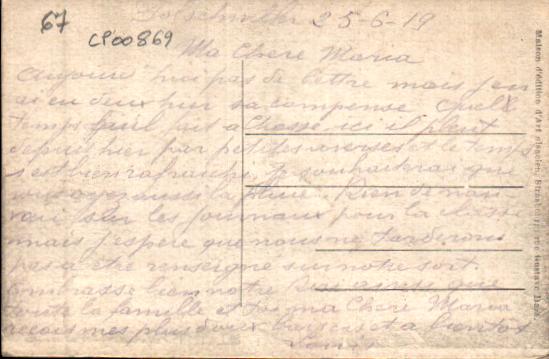 67
CP00869
25-6-19
Ma Chere Maria
aujour hui pas de lettre mais j'en
ai eu deux hier sa compense Quelle
temps fait il a Chosse ici il pleut
depuis hier par petites averses et le temps
s est bien rafraichi Je souhaiterai que
vous ayez aussi la pluie. Rien de nou
sur les journaux pour la classe
mais j'espere que nous ne tarderons
pas a etre renseigné sur notre sort.
embrasse bien notre ainsi que
toute la famille et toi ma Chere Maria
recois mes plus doux baisers et a bientot
Louis
Maison d'édition d'Art Alsacien, Strasbourg, rue Gustave Doré